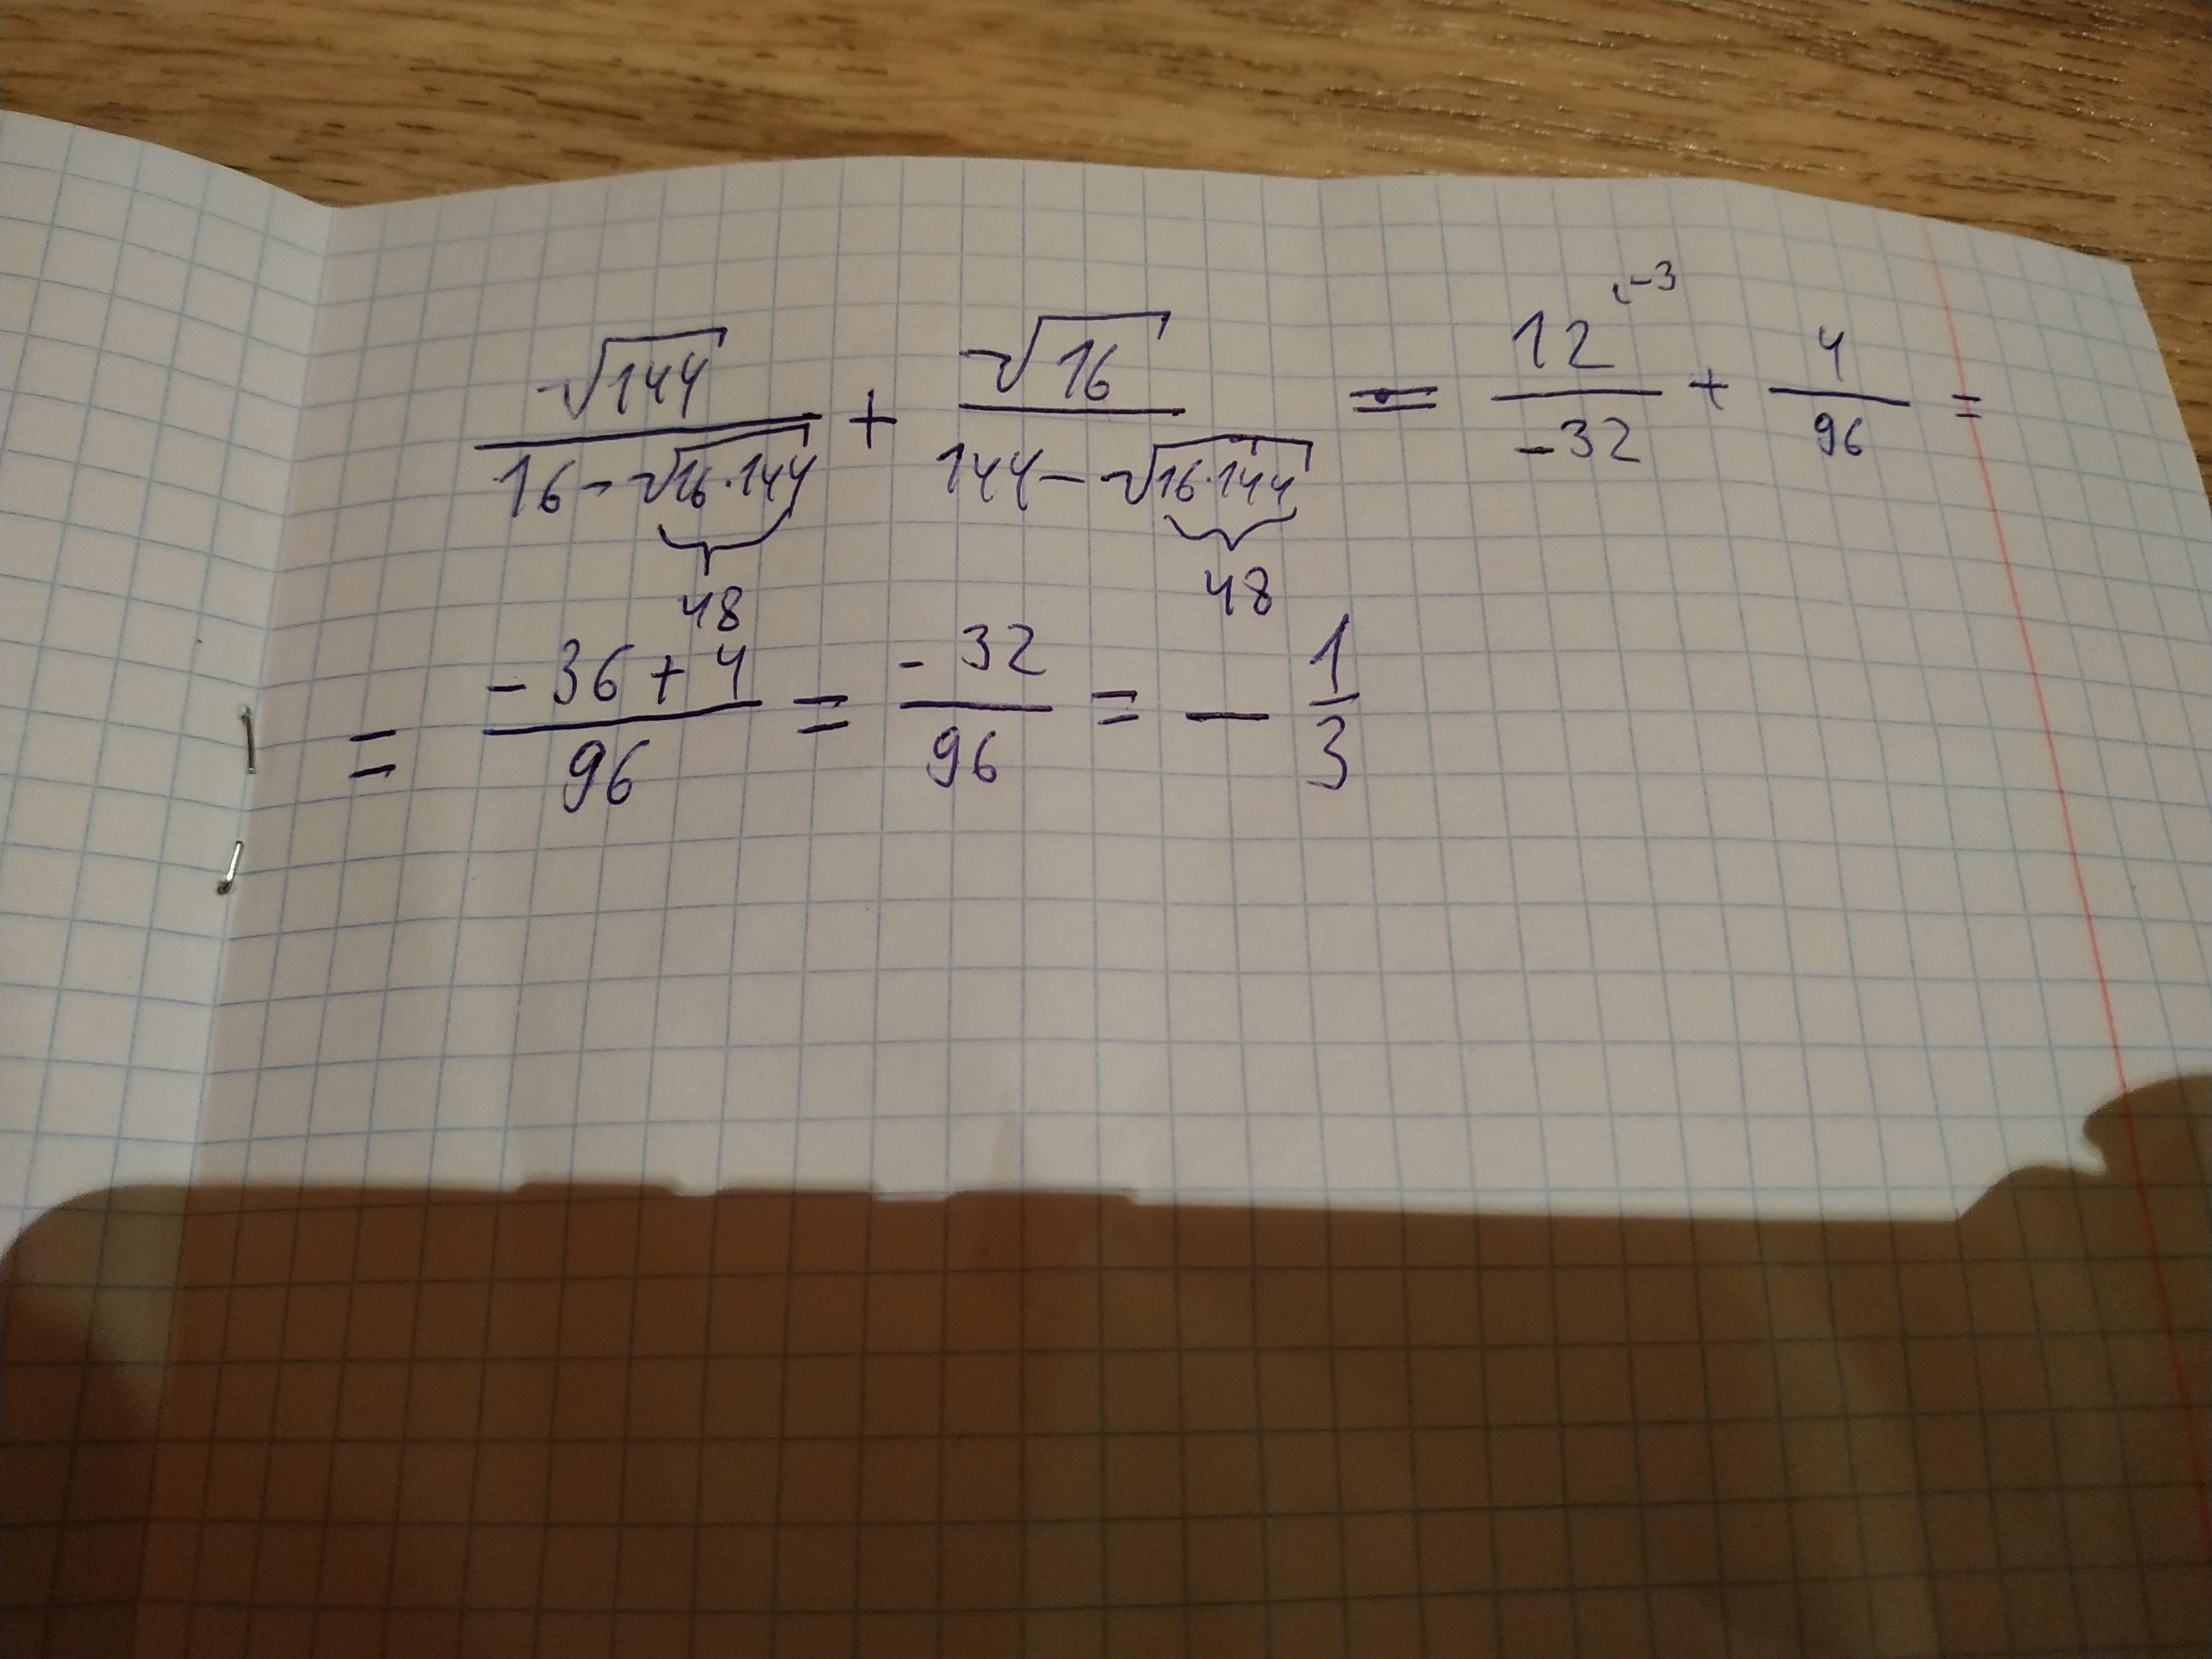 √144 / (16 - √(16·144)) + √16 / (144 - √(16·144)) = 12 / -32 + 4 / 96 =
-3
48 48
= (-36 + 4) / 96 = -32 / 96 = - 1/3